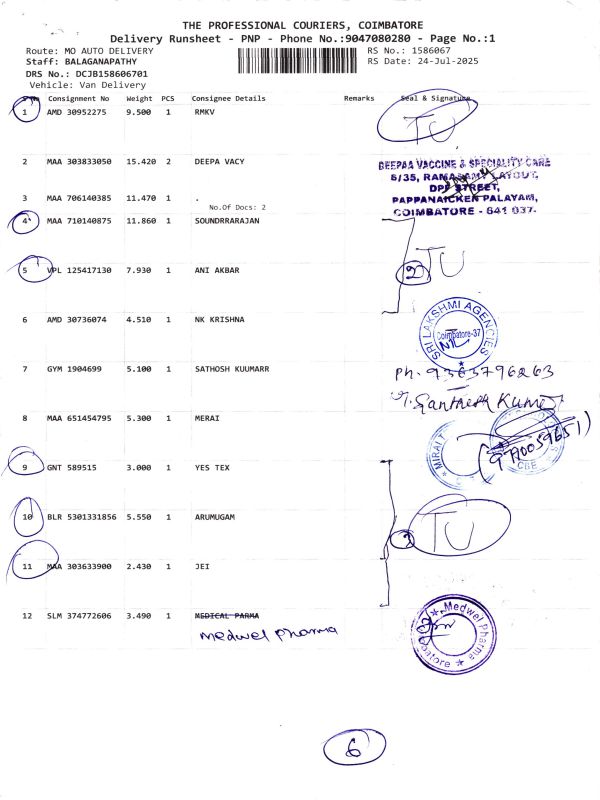 THE PROFESSIONAL COURIERS, COIMBATORE
Delivery Runsheet - PNP - Phone No.:9047080280 - Page No.:1
Route: MO AUTO DELIVERY
RS No.: 1586067
Staff: BALAGANAPATHY
RS Date: 24-Jul-2025
DRS No.: DCJB158606701
Vehicle: Van Delivery
S No Consignment No Weight PCS Consignee Details Remarks Seal & Signature
1 AMD 30952275 9.500 1 RMKV
TU
2 MAA 303833050 15.420 2 DEEPA VACY
DEEPAA VACCINE & SPECIALITY CARE
6/35, RAMASAMY LAYOUT,
DPF STREET,
PAPPANAICKEN PALAYAM,
COIMBATORE - 641 037.
3 MAA 706140385 11.470 1 .
No.Of Docs: 2
4 MAA 710140875 11.860 1 SOUNDRRARAJAN
5 VPL 125417130 7.930 1 ANI AKBAR
2 TU
6 AMD 30736074 4.510 1 NK KRISHNA
SRI LAKSHMI AGENCIES
Coimbatore-37
7 GYM 1904699 5.100 1 SATHOSH KUUMARR
Ph. 9363796263
Santhosh Kumar
8 MAA 651454795 5.300 1 MERAI
MIRAI
CBE
9 GNT 589515 3.000 1 YES TEX
10 BLR 5301331856 5.550 1 ARUMUGAM
TU
11 MAA 303633900 2.430 1 JEI
12 SLM 374772606 3.490 1 MEDICAL PARMA
medwel pharma
Medwel Pharma
6